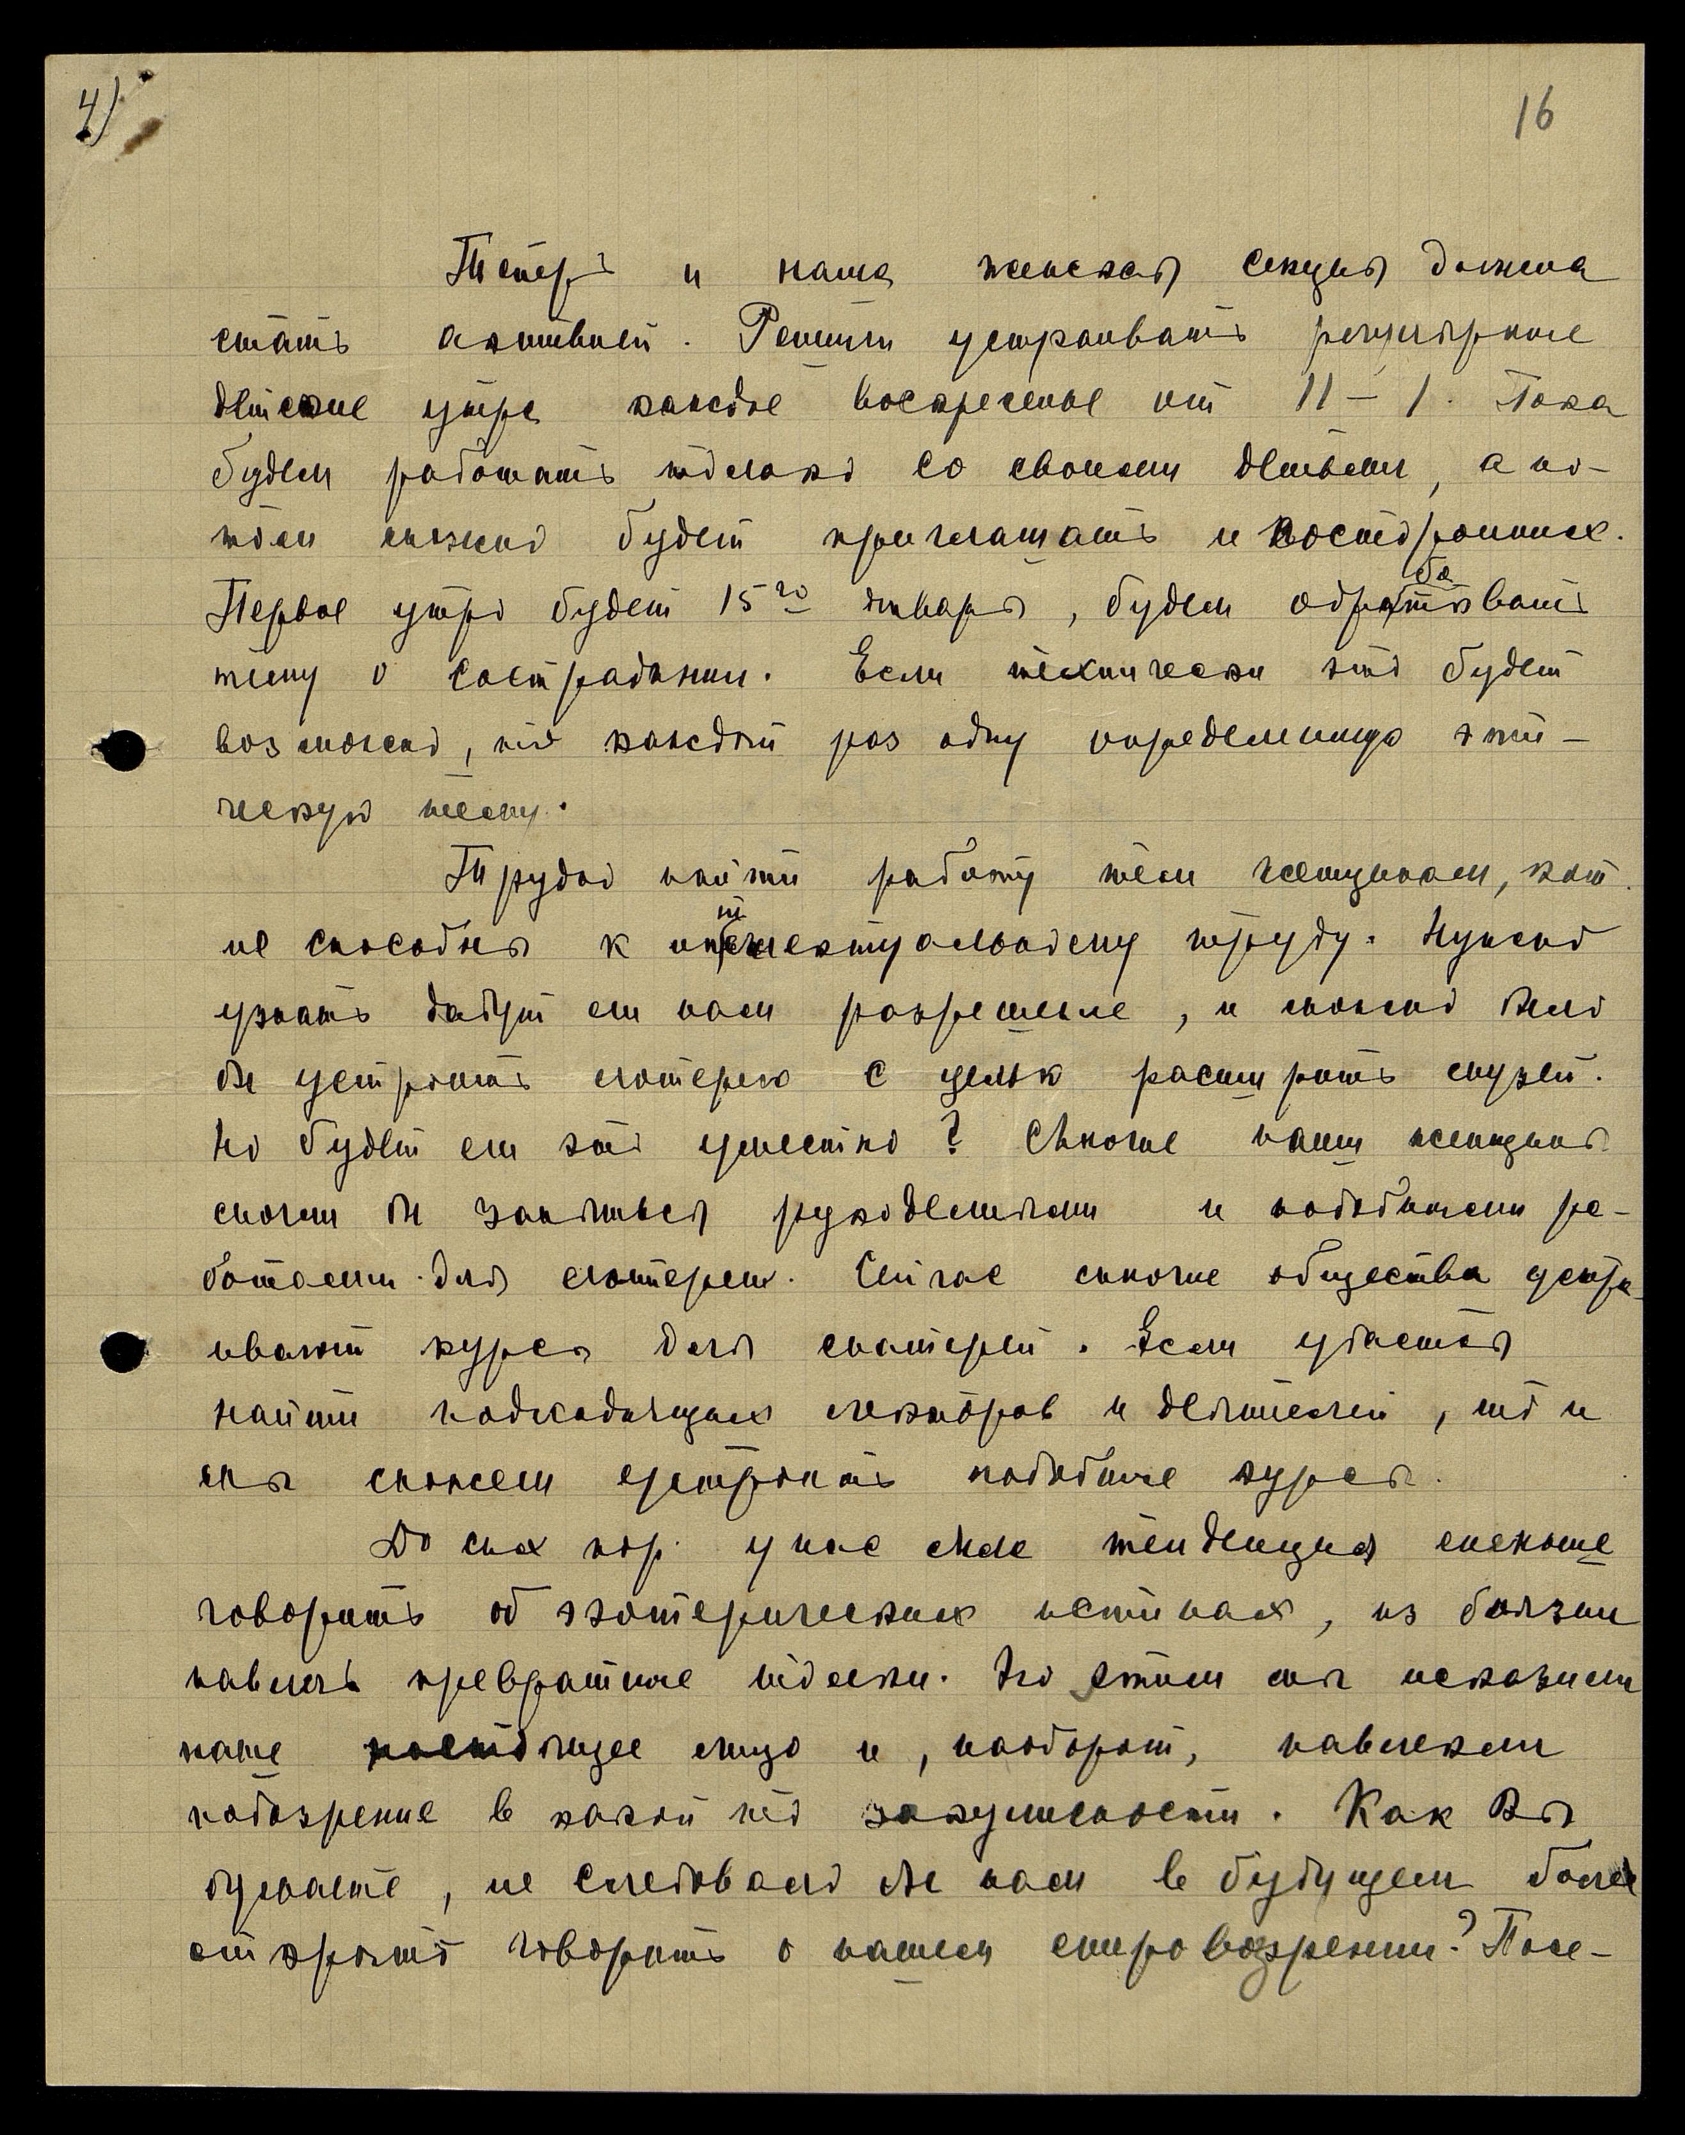 4)
16
Теперь и наша женская секция должна
стать активней. Решили устраивать регулярные
детские утра каждое воскресенье от 11 – 1. Пока
будем работать только со своими детьми, а по-
том можно будет приглашать и посторонних.
Первое утро будет 15го января, будем обрабатывать
тему о сострадании. Если технически это будет
возможно, то каждый раз одну определенную эти-
ческую тему.
Трудно найти работу тем женщинам, кот.
не способны к интеллектуальному труду. Нужно
узнать дадут ли нам разрешение, и можно было
бы устроить лотерею с целью расширить музей.
Но будет ли это уместно? Многие наши женщины
могли бы заняться рукоделиями и подобными ра-
ботами для лотереи. Сейчас многие общества устра-
ивают курсы для матерей. Если удастся
найти подходящих лекторов и деятелей, то и
мы сможем устроить подобные курсы.
До сих пор у нас была тенденция меньше
говорить об эзотерических истинах, из боязни
навлечь превратные толки. Но этим мы исказили
наше настоящее лицо и, наоборот, навлекли
подозрение в какой то закулисности. Как Вы
думаете, не следовало бы нам в будущем более
открыто говорить о нашем мировоззрении? Посе-